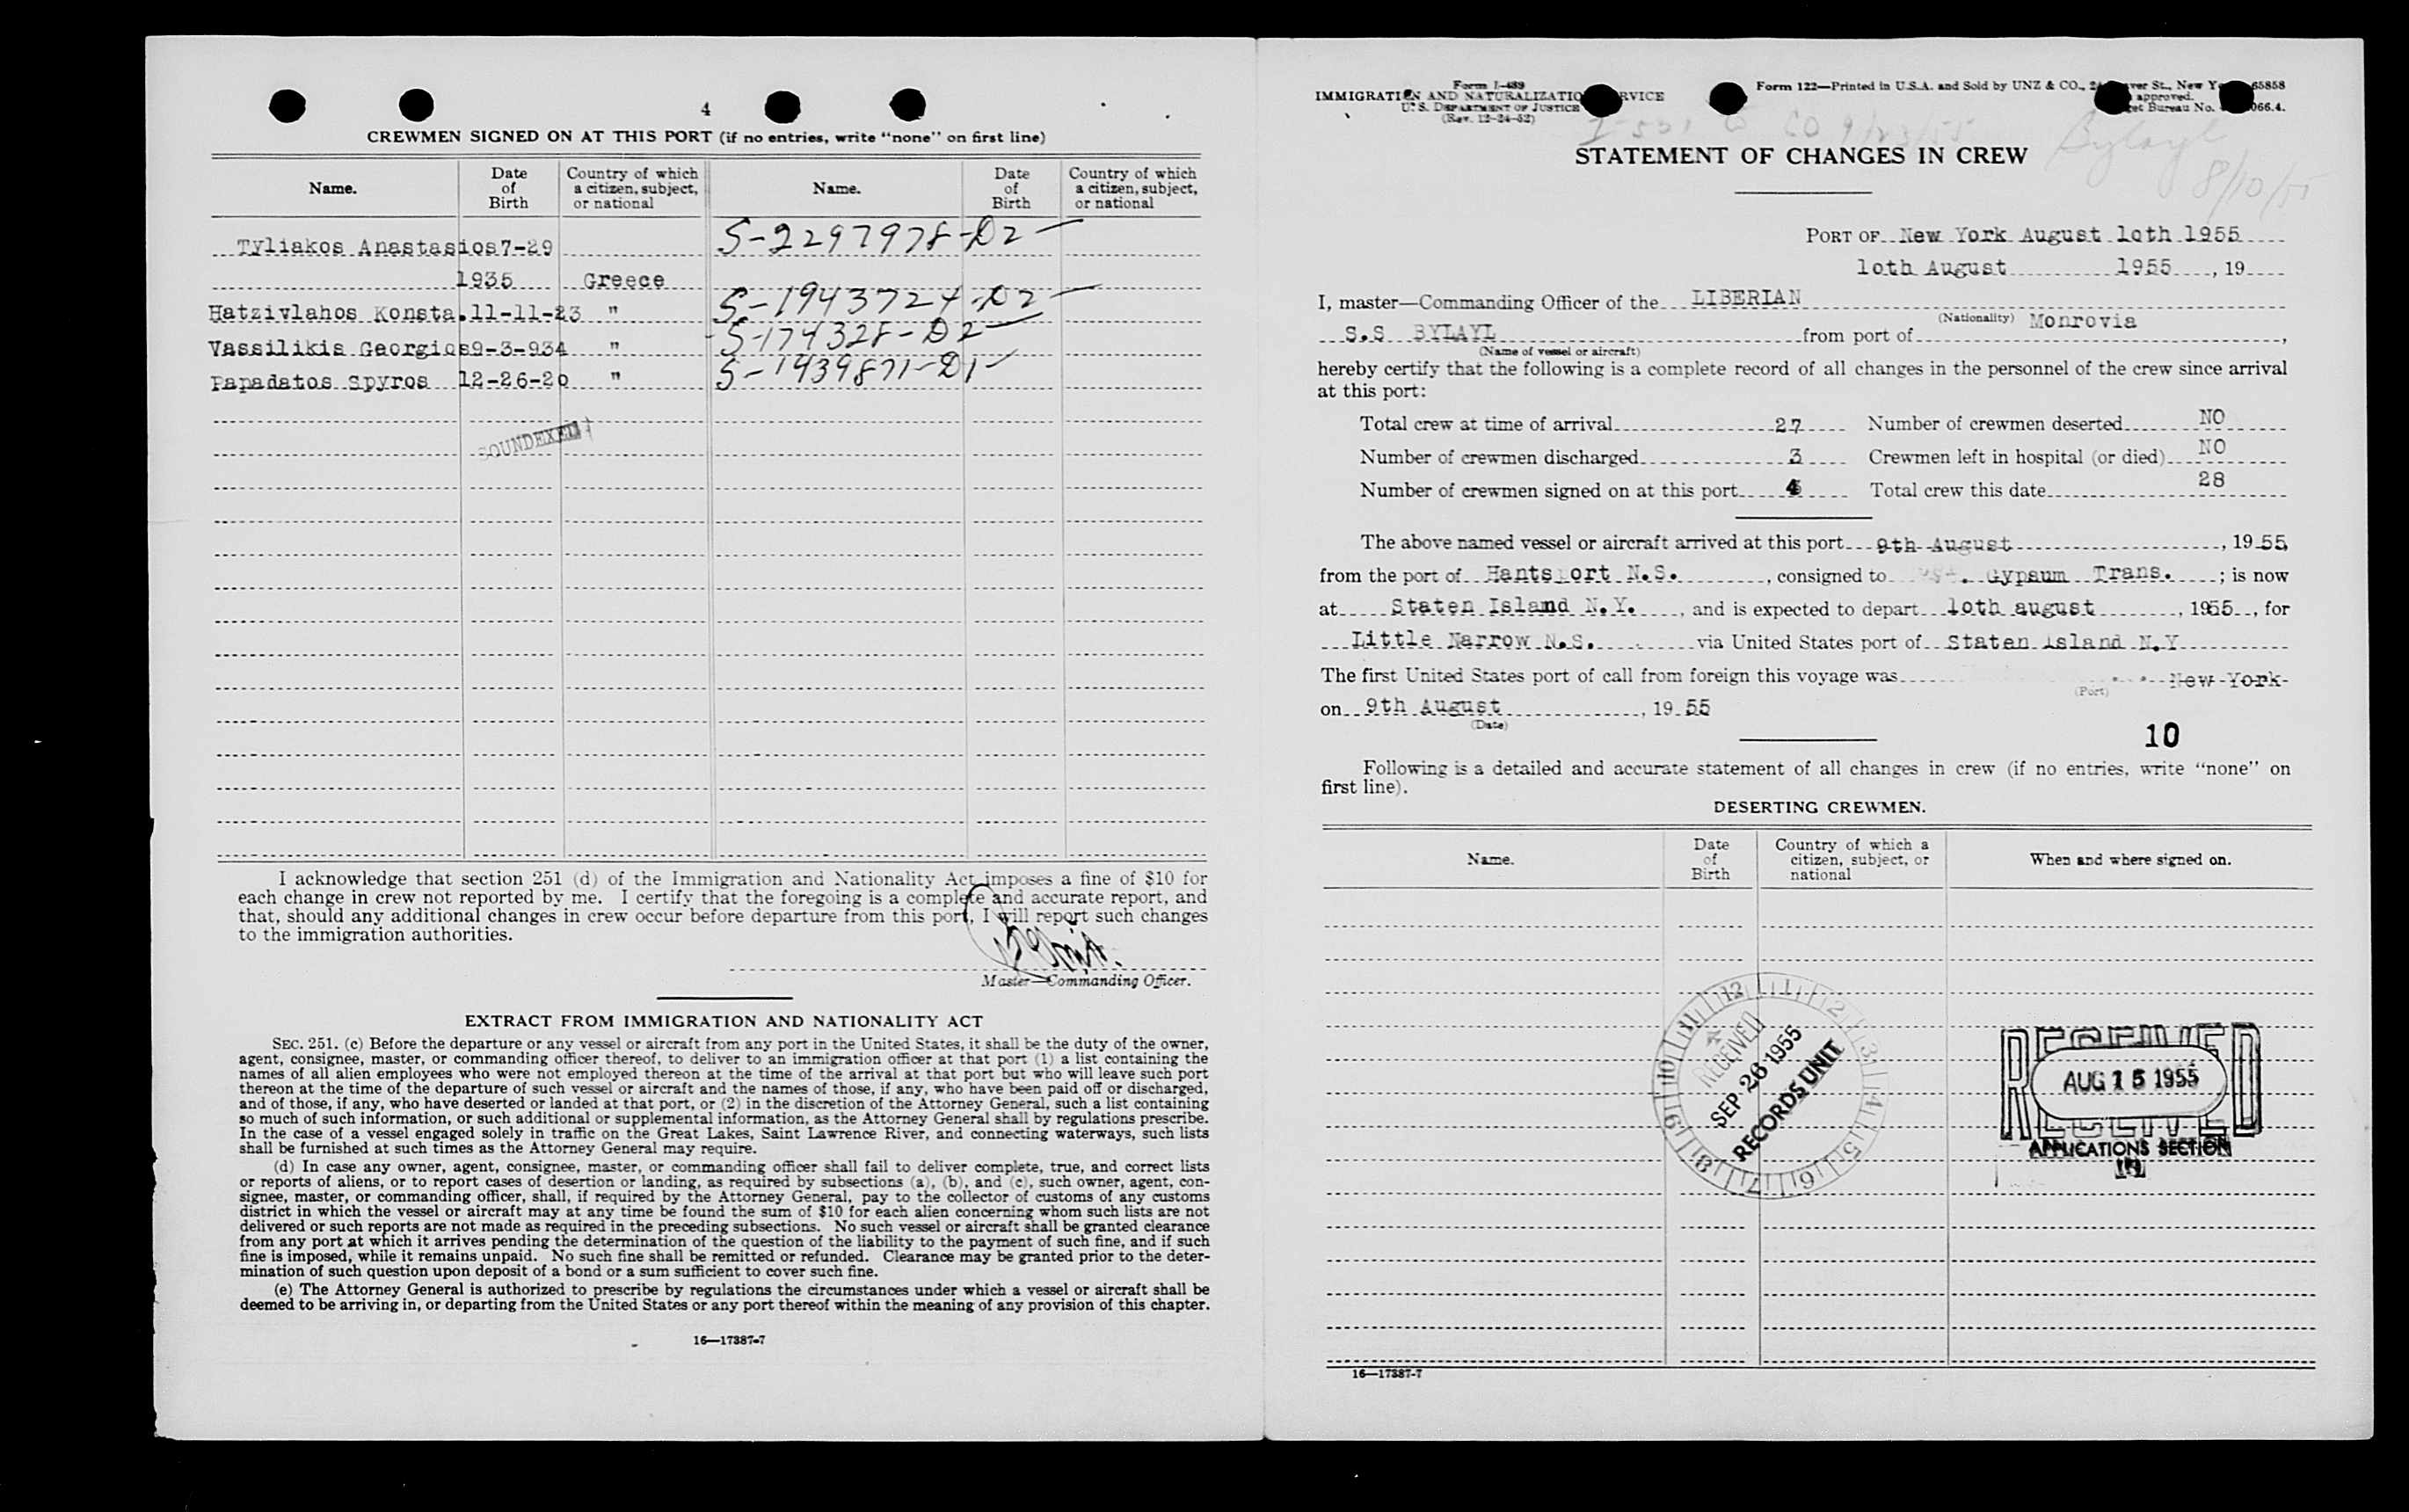 4
CREWMEN SIGNED ON AT THIS PORT (if no entries, write "none" on first line)
Name. Date of Birth Country of which a citizen, subject, or national Name. Date of Birth Country of which a citizen, subject, or national
Tyliakos Anastasios 7-29 S-2297978-D2
1935 Greece
Hatzivlahos Konsta. 11-11-23 " S-1943724-D2
Vassilikis Georgios 9-3-934 " S-174328-D2
Papadatos Spyros 12-26-20 " S-1439871-D1
SOUNDEXED
I acknowledge that section 251 (d) of the Immigration and Nationality Act imposes a fine of $10 for
each change in crew not reported by me. I certify that the foregoing is a complete and accurate report, and
that, should any additional changes in crew occur before departure from this port, I will report such changes
to the immigration authorities.
Master—Commanding Officer.
EXTRACT FROM IMMIGRATION AND NATIONALITY ACT
SEC. 251. (c) Before the departure or any vessel or aircraft from any port in the United States, it shall be the duty of the owner,
agent, consignee, master, or commanding officer thereof, to deliver to an immigration officer at that port (1) a list containing the
names of all alien employees who were not employed thereon at the time of the arrival at that port but who will leave such port
thereon at the time of the departure of such vessel or aircraft and the names of those, if any, who have been paid off or discharged,
and of those, if any, who have deserted or landed at that port, or (2) in the discretion of the Attorney General, such a list containing
so much of such information, or such additional or supplemental information, as the Attorney General shall by regulations prescribe.
In the case of a vessel engaged solely in traffic on the Great Lakes, Saint Lawrence River, and connecting waterways, such lists
shall be furnished at such times as the Attorney General may require.
(d) In case any owner, agent, consignee, master, or commanding officer shall fail to deliver complete, true, and correct lists
or reports of aliens, or to report cases of desertion or landing, as required by subsections (a), (b), and (c), such owner, agent, con-
signee, master, or commanding officer, shall, if required by the Attorney General, pay to the collector of customs of any customs
district in which the vessel or aircraft may at any time be found the sum of $10 for each alien concerning whom such lists are not
delivered or such reports are not made as required in the preceding subsections. No such vessel or aircraft shall be granted clearance
from any port at which it arrives pending the determination of the question of the liability to the payment of such fine, and if such
fine is imposed, while it remains unpaid. No such fine shall be remitted or refunded. Clearance may be granted prior to the deter-
mination of such question upon deposit of a bond or a sum sufficient to cover such fine.
(e) The Attorney General is authorized to prescribe by regulations the circumstances under which a vessel or aircraft shall be
deemed to be arriving in, or departing from the United States or any port thereof within the meaning of any provision of this chapter.
16—17387-7
Form I-489
IMMIGRATION AND NATURALIZATIO RVICE
U. S. DEPARTMENT OF JUSTICE
(Rev. 12-24-52)
Form 122—Printed in U.S.A. and Sold by UNZ & CO., 24 ver St., New Y 65858
approved.
et Bureau No. 066.4.
CO 9/23/55
Bylayl
8/10/55
STATEMENT OF CHANGES IN CREW
PORT OF New York August 1oth 1955
1oth August 1955, 19
I, master—Commanding Officer of the LIBERIAN
(Nationality)
S.S BYLAYL from port of Monrovia,
(Name of vessel or aircraft)
hereby certify that the following is a complete record of all changes in the personnel of the crew since arrival
at this port:
Total crew at time of arrival 27 Number of crewmen deserted NO
Number of crewmen discharged 3 Crewmen left in hospital (or died) NO
Number of crewmen signed on at this port 4 Total crew this date 28
The above named vessel or aircraft arrived at this port 9th August, 19 55
from the port of Hantsport N.S., consigned to Gypsum Trans.; is now
at Staten Island N.Y., and is expected to depart 1oth august, 1955, for
Little Narrow N.S. via United States port of Staten island N.Y
The first United States port of call from foreign this voyage was New York
(Port)
on 9th August, 19 55
(Date)
10
Following is a detailed and accurate statement of all changes in crew (if no entries, write "none" on
first line).
DESERTING CREWMEN.
Name. Date of Birth Country of which a citizen, subject, or national When and where signed on.
12 1 2 3 4 5 6 7 8 9 10 11
RECEIVED
SEP 26 1955
RECORDS UNIT
RECEIVED
AUG 15 1955
APPLICATIONS SECTION
16—17387-7